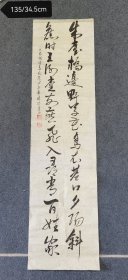 135/34.5cm
朱雀桥边野草花乌衣巷口夕阳斜
旧时王谢堂前燕飞入寻常百姓家